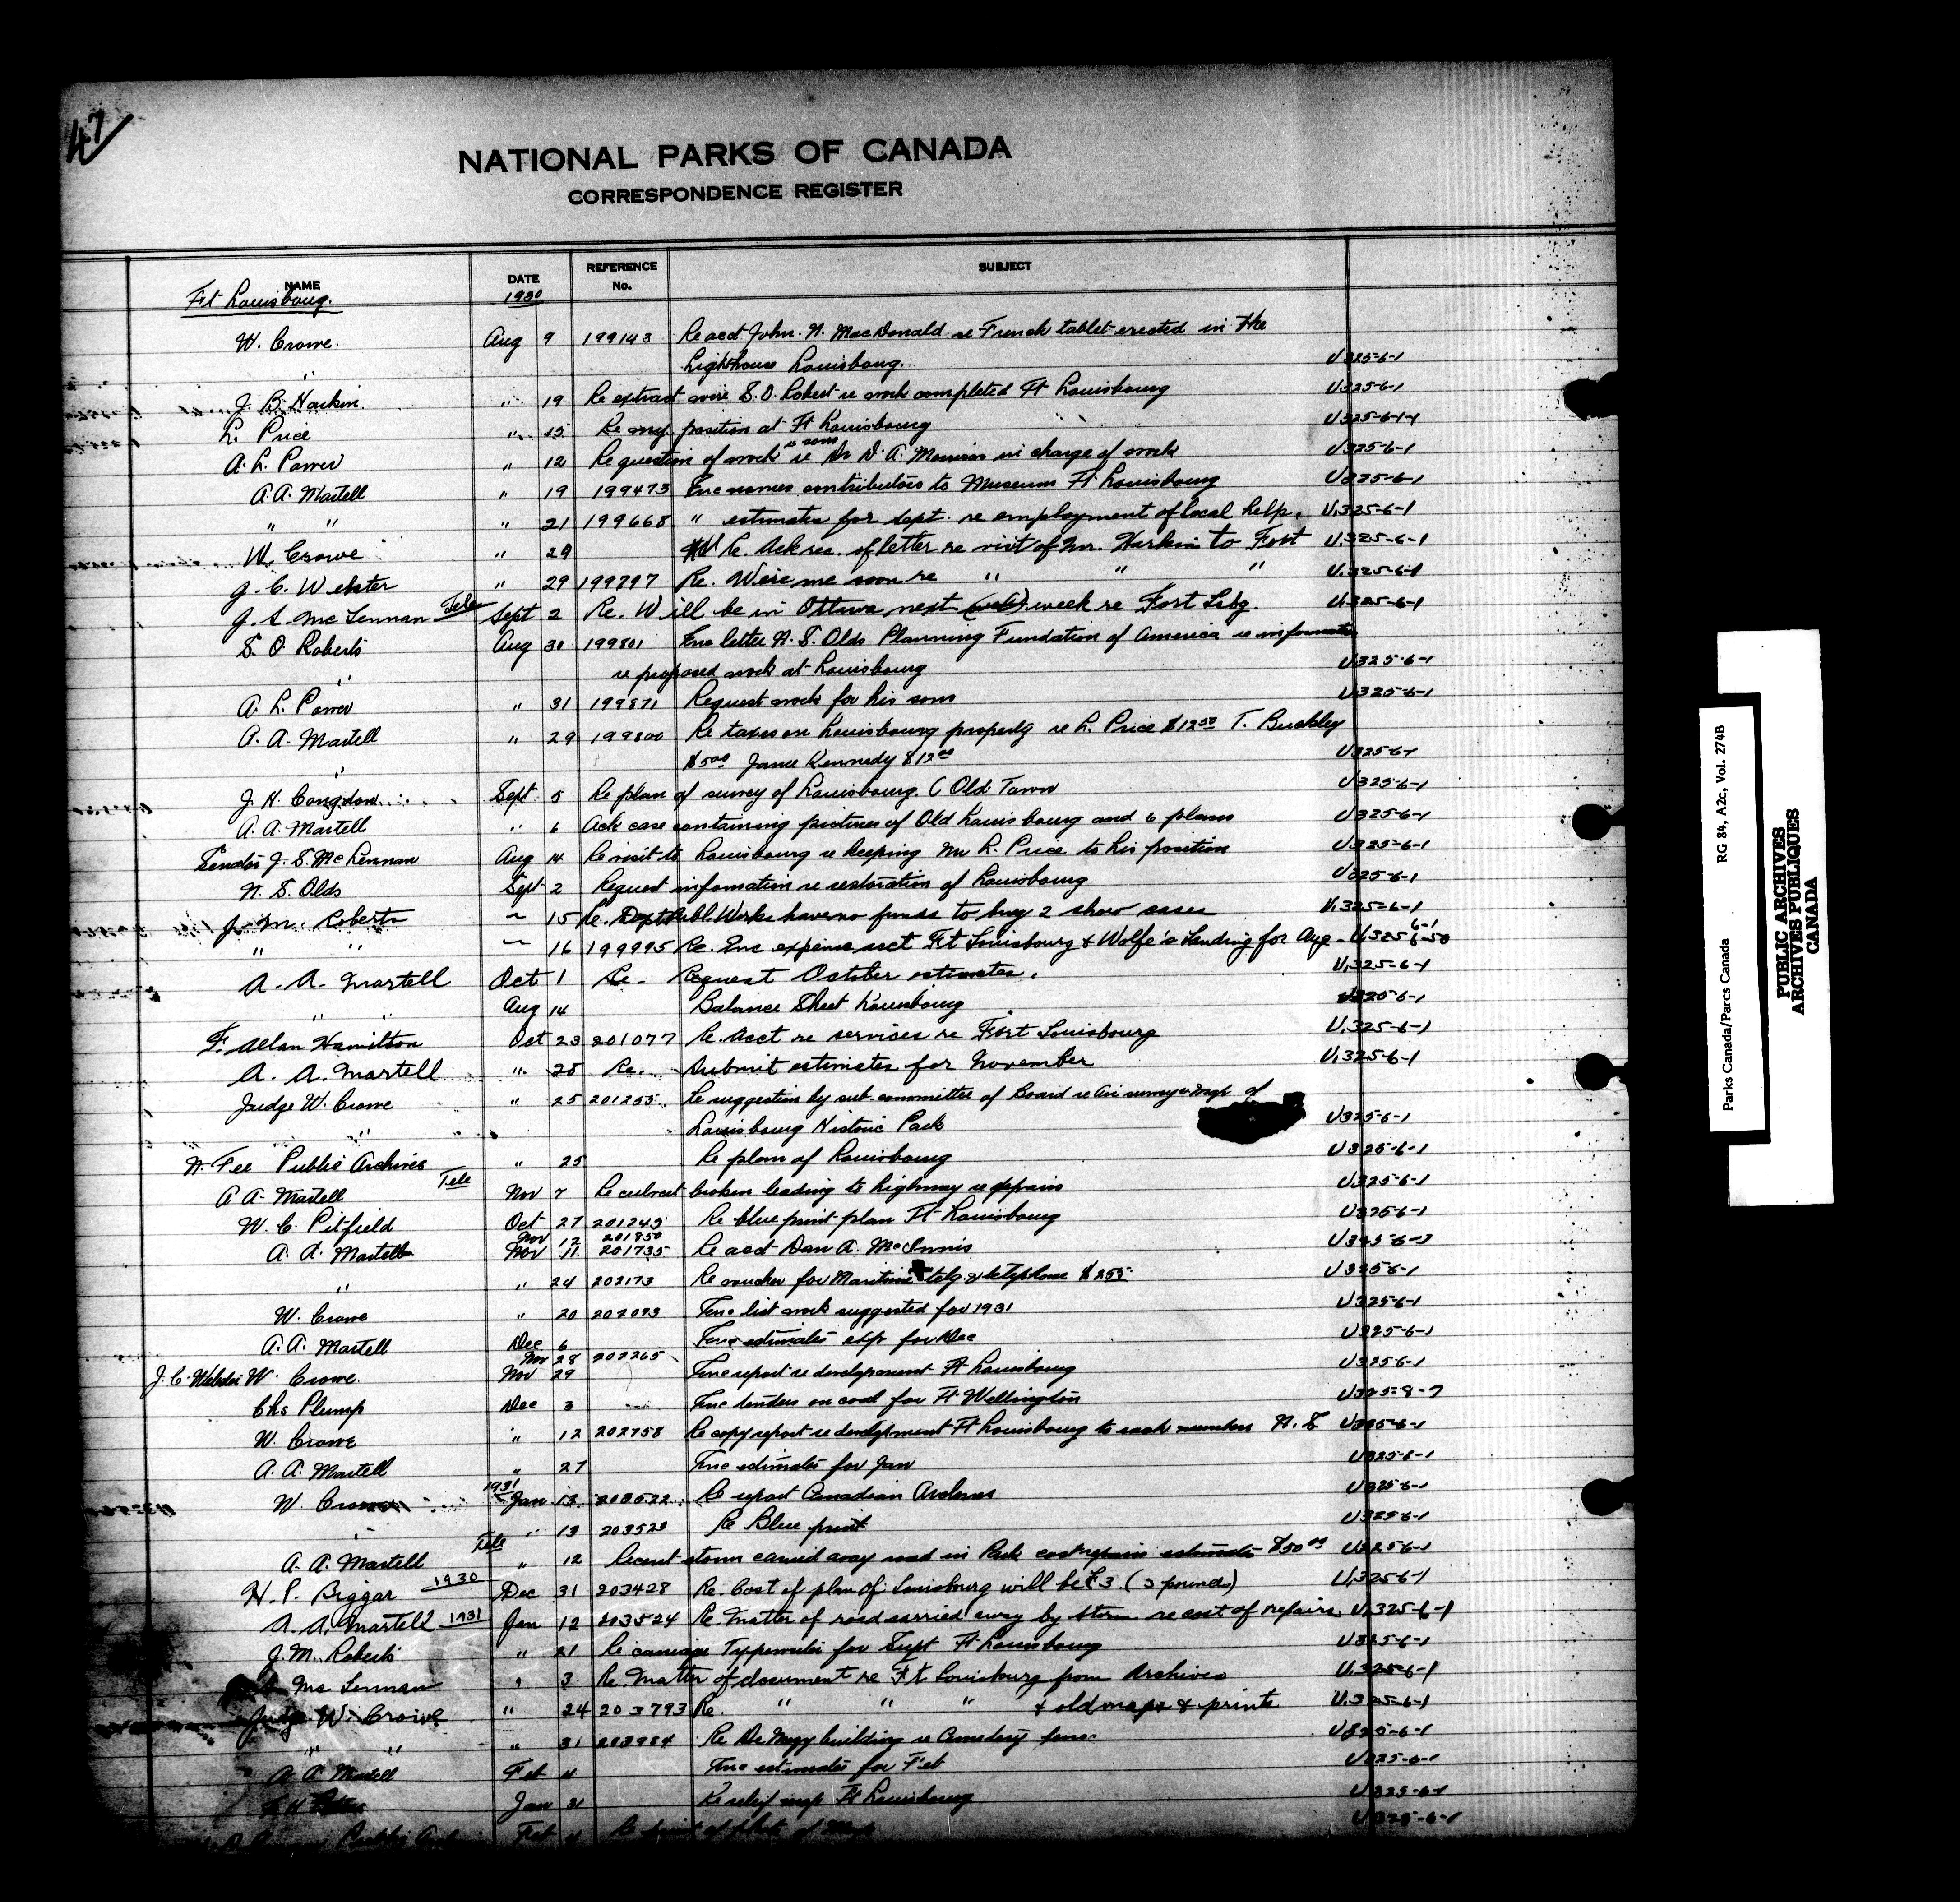 47
NATIONAL PARKS OF CANADA
CORRESPONDENCE REGISTER
NAME DATE REFERENCE No. SUBJECT
Ft Louisbourg. 1930
W. Crowe. Aug 9 199143 Re acct John. N. MacDonald re French tablet erected in the
" Lighthouse Louisbourg. U325-6-1
J. B. Harkin. " 19 Re extract wire S.O. Robert re work completed Ft Louisbourg U325-6-1
L. Price " 15 Re my position at Ft Louisbourg U325-6-1-1
A. L. Power " 12 Re question of work re Dr D. A. in charge of work U325-6-1
A. A. Martell " 19 199473 Enc names contributors to Museum Ft Louisbourg U325-6-1
" " " 21 199668 " estimates for Sept. re employment of local help. U.325-6-1
W. Crowe " 29 Re. Ack rec. of letter re visit of Mr. Harkin to Fort U.325-6-1
J. C. Webster " 29 199797 Re. Wire me soon re " " " U.325-6-1
J. S. McLennan Tele Sept 2 Re. Will be in Ottawa next week re Fort Lsbg. U.325-6-1
S. O. Roberts Aug 30 199801 Enc letter N. S. Olds Planning Fundation of America re information
" re proposed work at Louisbourg U325-6-1
A. L. Power " 31 199871 Request work for his son U325-6-1
A. A. Martell " 29 199800 Re taxes on Louisbourg property re L. Price $12 50 T. Buckley
" $5 00 Kennedy $12 00 U325-6-1
J. H. Congdon Sept 5 Re plan of survey of Louisbourg. (Old Town U325-6-1
A. A. Martell " 6 Ack case containing pictures of Old Louisbourg and 6 plans U325-6-1
Senator J. S. McLennan Aug 14 Re visit to Louisbourg re keeping Mr L. Price to his position U325-6-1
N. S. Olds Sept 2 Request information re restoration of Louisbourg U325-6-1
J. M. Roberts " 15 Re. Dept Publ. Works have no funds to buy 2 show cases U.325-6-1
" " " 16 199995 Re. Enc expense acct Ft Louisbourg & Wolfe's Landing for Aug - U.325 6-1 6-50
A. A. Martell Oct 1 Re. Request October estimates. U.325-6-1
" " Aug 14 Balance Sheet Louisbourg U325-6-1
F. Allan Hamilton Oct 23 201077 Re. Acct re services re Fort Louisbourg U.325-6-1
A. A. Martell " 28 Re. Submit estimates for November U.325-6-1
Judge W. Crowe " 25 201255. Re suggestion by sub-committee of Board re Air survey & map of
" Louisbourg Historic Park U325-6-1
N. Fee Public Archives " 25 Re plan of Louisbourg U325-6-1
A A. Martell Tele Nov 7 Re culvert broken leading to highway re repairs U325-6-1
W. C. Pitfield Oct 27 201243 Re blue print plan Ft Louisbourg U325-6-1
Nov 12 201850
A. A. Martell Nov 11 201735 Re acct Dan A. McInnis U325-6-1
" " 24 202173 Re voucher for Maritime telg & telephone $2 55 U325-6-1
W. Crowe " 20 202093 Enc list work suggested for 1931 U325-6-1
A. A. Martell Dec 6 Enc estimates exp for Dec U325-6-1
Nov 28 202265
J. C. Webster W. Crowe Nov 29 Enc report re development Ft Louisbourg U325-6-1
Chs Plump Dec 3 Enc tenders on coal for Ft Wellington U325-8-7
W. Crowe " 12 202758 Re copy report re development Ft Louisbourg to each member U325-6-1
A. A. Martell " 27 Enc estimates for Jan U325-6-1
W Crowe 1931 Jan 13 203522 Re report Canadian Archives U325-6-1
" " 13 203523 Re Blue print U325-6-1
A. A. Martell Tele " 12 Recent storm carried away road in Park cost repairs estimate $50 00 U325-6-1
H. P. Biggar 1930 Dec 31 203428 Re. Cost of plan of Louisbourg will be £3. (3 pounds) U.325-6-1
A. A. Martell 1931 Jan 12 203524 Re. Matter of road carried away by storm re cost of repairs U.325-6-1
J. M. Roberts " 21 Re carriage Typewriter for Supt Ft Louisbourg U325-6-1
Mc Lennan " 3 Re. Matter of document re Ft Louisbourg from Archives U.325-6-1
Judge W. Crowe " 24 203793 Re. " " " & old maps & prints U.325-6-1
" " " 31 203984 Re building re Cemetery U325-6-1
A A Martell Feb 4 Enc estimates for Feb U325-6-1
Jan 31 Re relief map Ft Louisbourg U325-6-1
Public Feb Re of U325-6-1
Parks Canada/Parcs Canada RG 84, A2c, Vol. 274B
PUBLIC ARCHIVES
ARCHIVES PUBLIQUES
CANADA